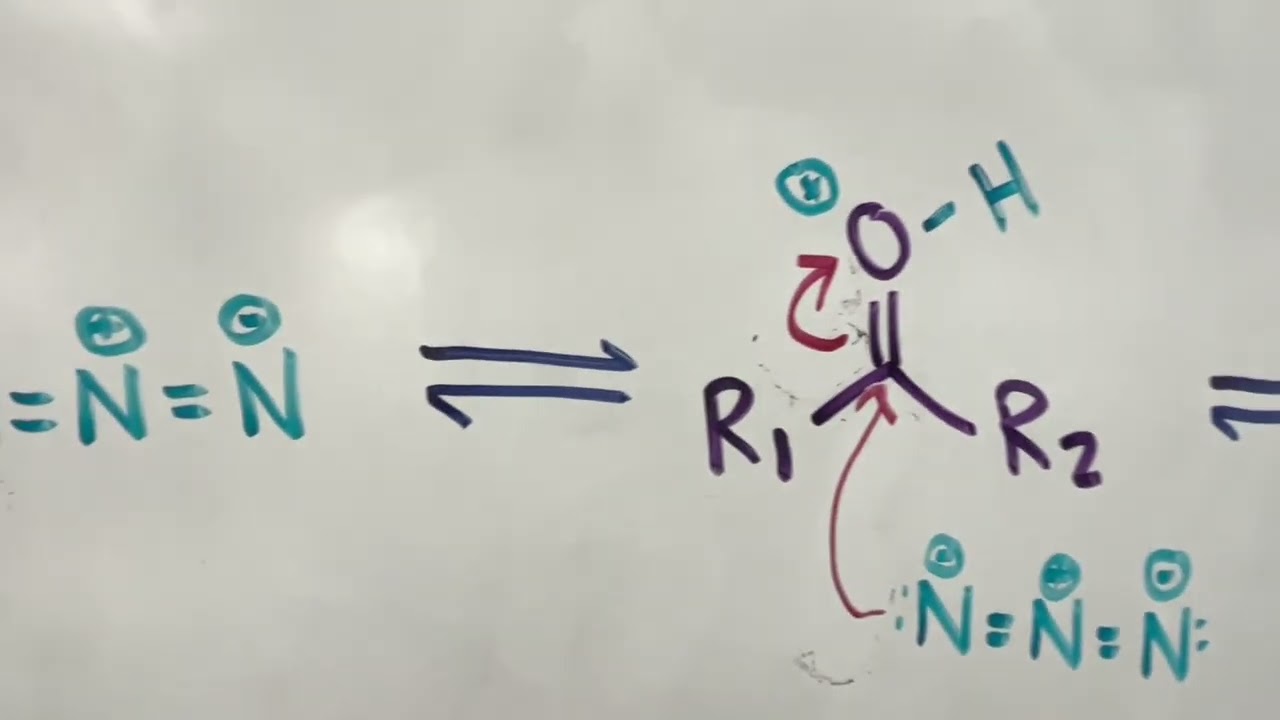 ⊕ ⊖
= N = N ⇌
⊕
O - H
R1 R2
⊖ ⊕ ⊖
:N = N = N:
⇌